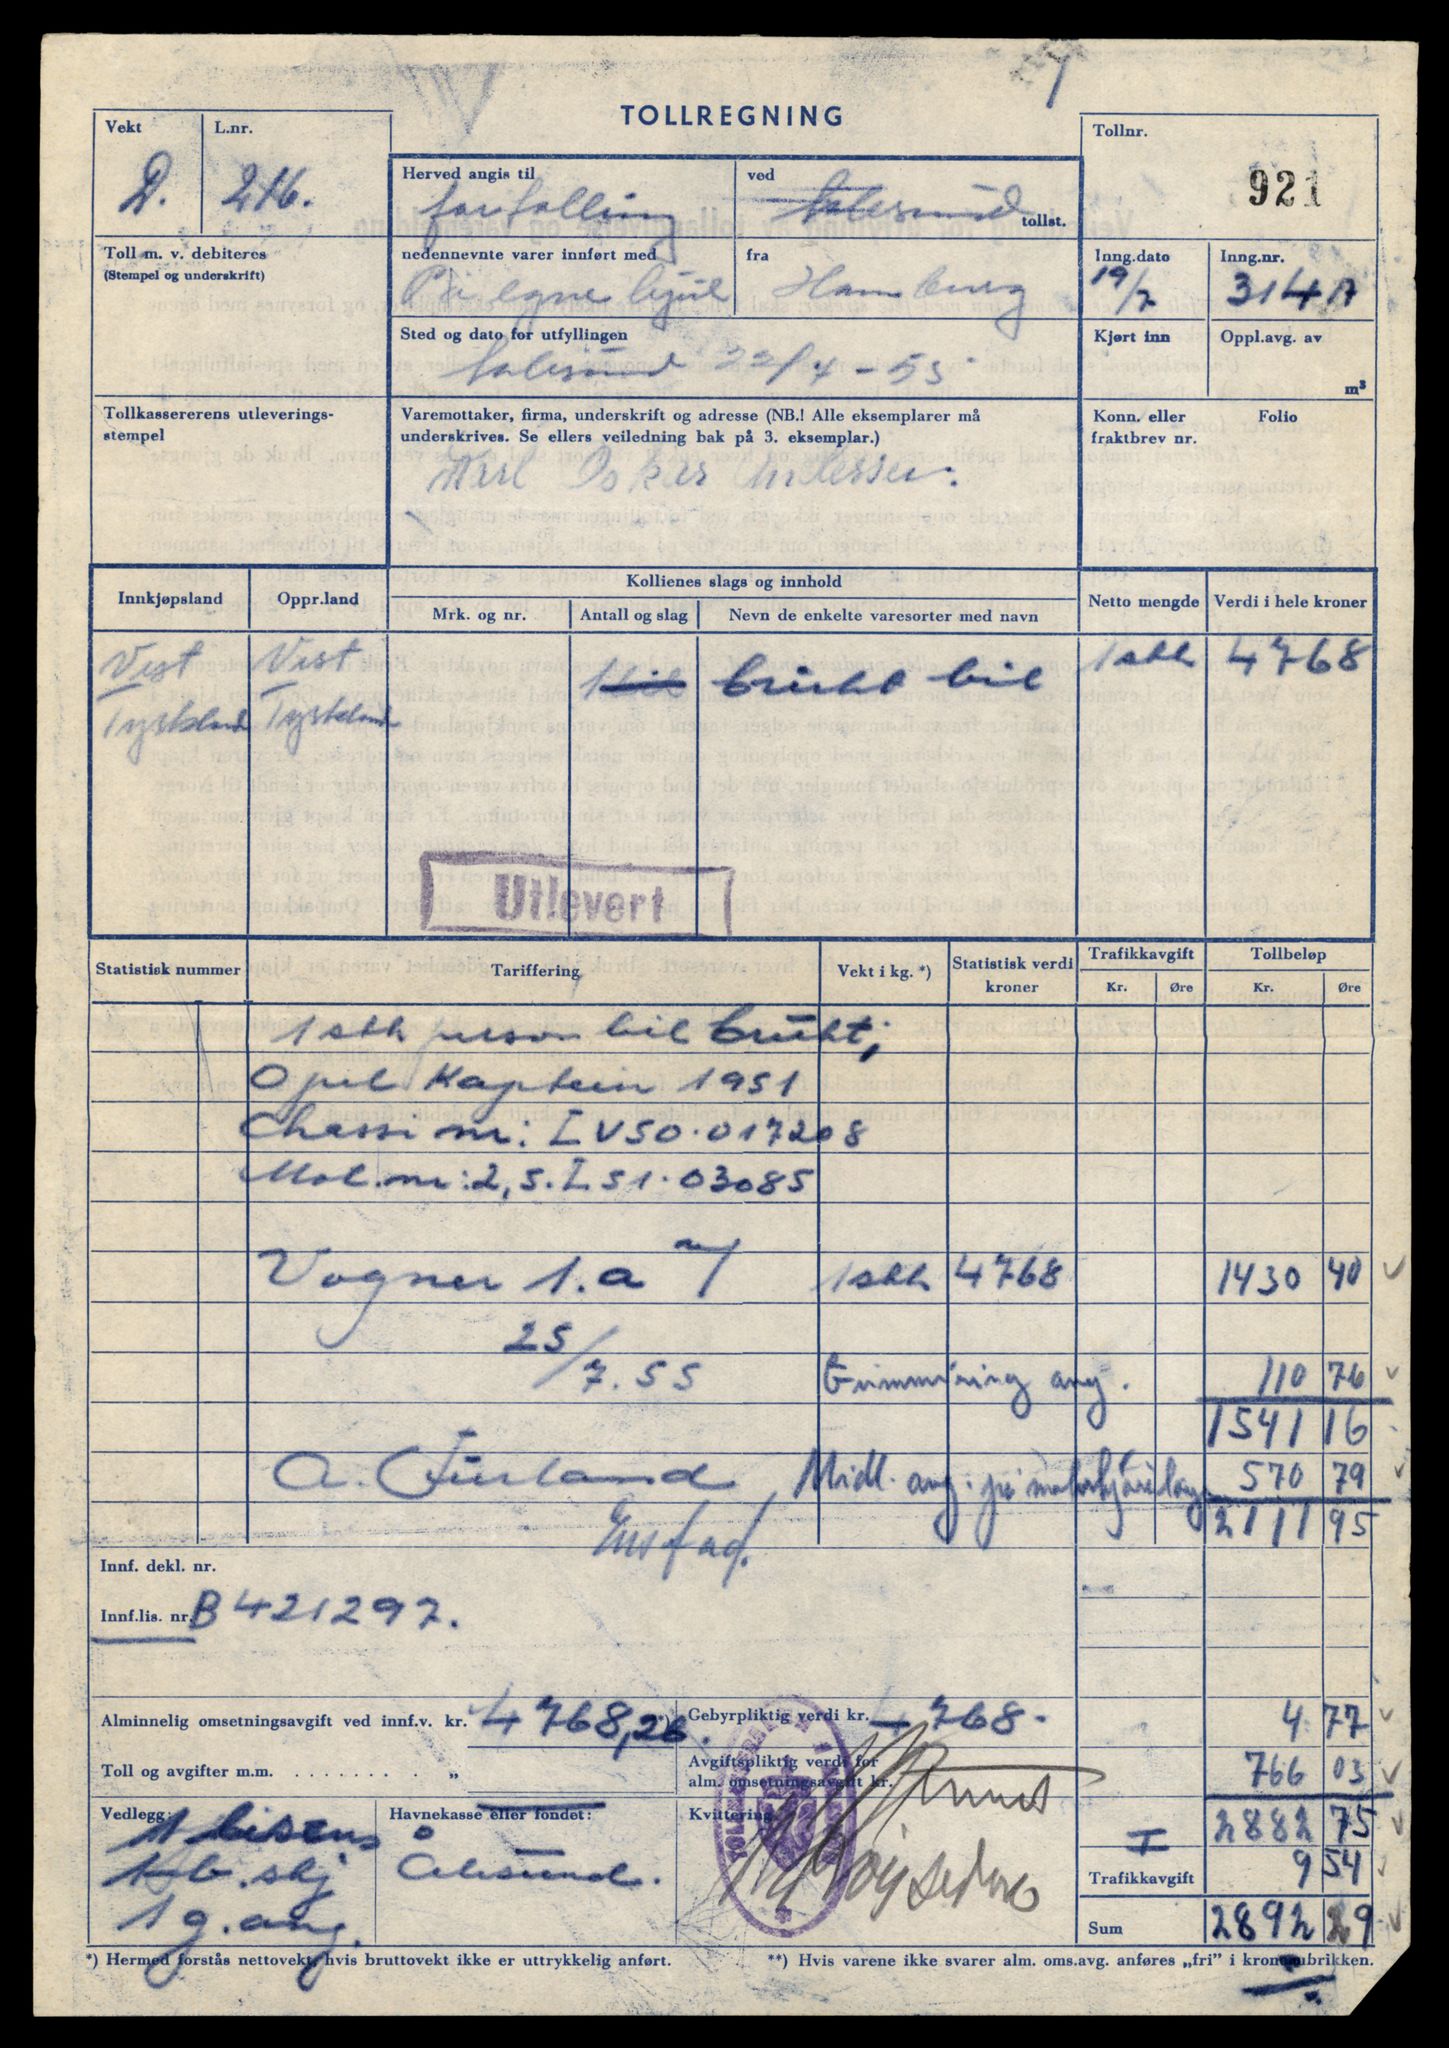 TOLLREGNING
Vekt
L.nr.
D. 216.
Tollnr.
921
Herved angis til
fortolling
ved
Aalesund
tollst.
Toll m. v. debiteres
(Stempel og underskrift)
nedennevnte varer innført med
På egne hjul
fra
Hamburg
Inng.dato
19/7
Inng.nr.
314 A
Sted og dato for utfyllingen
Aalesund 22/7 - 55
Kjørt inn
Oppl.avg. av
m³
Tollkassererens utleverings-
stempel
Varemottaker, firma, underskrift og adresse (NB.! Alle eksemplarer må
underskrives. Se ellers veiledning bak på 3. eksemplar.)
Karl Oskar Andersen.
Konn. eller
fraktbrev nr.
Folio
Innkjøpsland
Oppr.land
Kollienes slags og innhold
Mrk. og nr.
Antall og slag
Nevn de enkelte varesorter med navn
Netto mengde
Verdi i hele kroner
Vest Vest 1 bil brukt bil 1 stk 4768
Tyskland Tyskland
Utlevert
Statistisk nummer
Tariffering
Vekt i kg. *)
Statistisk verdi
kroner
Trafikkavgift
Kr. Øre
Tollbeløp
Kr. Øre
1 stk person bil brukt;
Opel Kaptein 1951
Chassi nr: LV50-017208
Mot. nr: 2,5. L51-03085
Vogner 1.a 1 stk 4768 1430 40
25/7.55 Gummiring avg. 110 76
1541 16
Midl. avg. på motorkjøretøy 570 79
2111 95
Innf. dekl. nr.
Innf.lis. nr. B 421297.
Alminnelig omsetningsavgift ved innf.v. kr. 4768,26
Gebyrpliktig verdi kr. 4768- 4 77
Toll og avgifter m.m. . . . . . . . . „
Avgiftspliktig verdi for
alm. omsetningsavgift kr.
766 03
Vedlegg:
1 lisens
1 b. skj
1 g. ang.
Havnekasse eller fondet:
Ålesund.
Kvittering
2882 75
Trafikkavgift 9 54
Sum 2892 29
*) Hermed forstås nettovekt, hvis bruttovekt ikke er uttrykkelig anført.
**) Hvis varene ikke svarer alm. oms.avg. anføres „fri” i kronerubrikken.